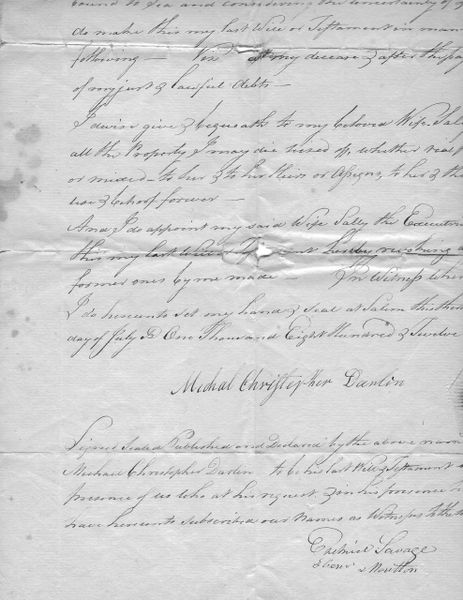 bound to Sea and considering the uncertainty of
do make this my last Will or Testament in man
following — Viz at my decease & after the pay
of my just & lawful debts —
I devise give & bequeath to my beloved Wife Sal
all the Property I may die seized of, whether real
or mixed — to her & to her Heirs or assigns, to her & th
use & behoof forever —
And I do appoint my said Wife Sally the Execut
this my last Will & Testament hereby revoking a
former ones by me made — In Witness wher
I do hereunto set my hand & seal at Salem this
day of July One Thousand Eight Hundred & Twelve
Michal Christopher Danlin
Signed Sealed Published and Declared by the above nam
Michael Christopher Darlin to be his last Will & Testament
presence of us who at his request & in his presence h
have hereunto subscribed our Names as Witness to the
Ezekiel Savage